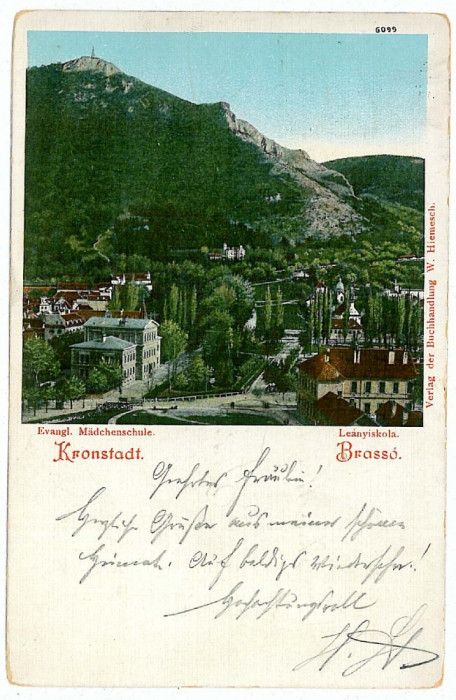 6099
Verlag der Buchhandlung W. Hiemesch.
Evangl. Mädchenschule. Leányiskola.
Kronstadt. Brassó.
Geehrtes Fräulein!
Herzliche Grüße aus meiner schönen
Heimat. Auf baldigs Wiedersehn!
Hochachtungsvoll
H.